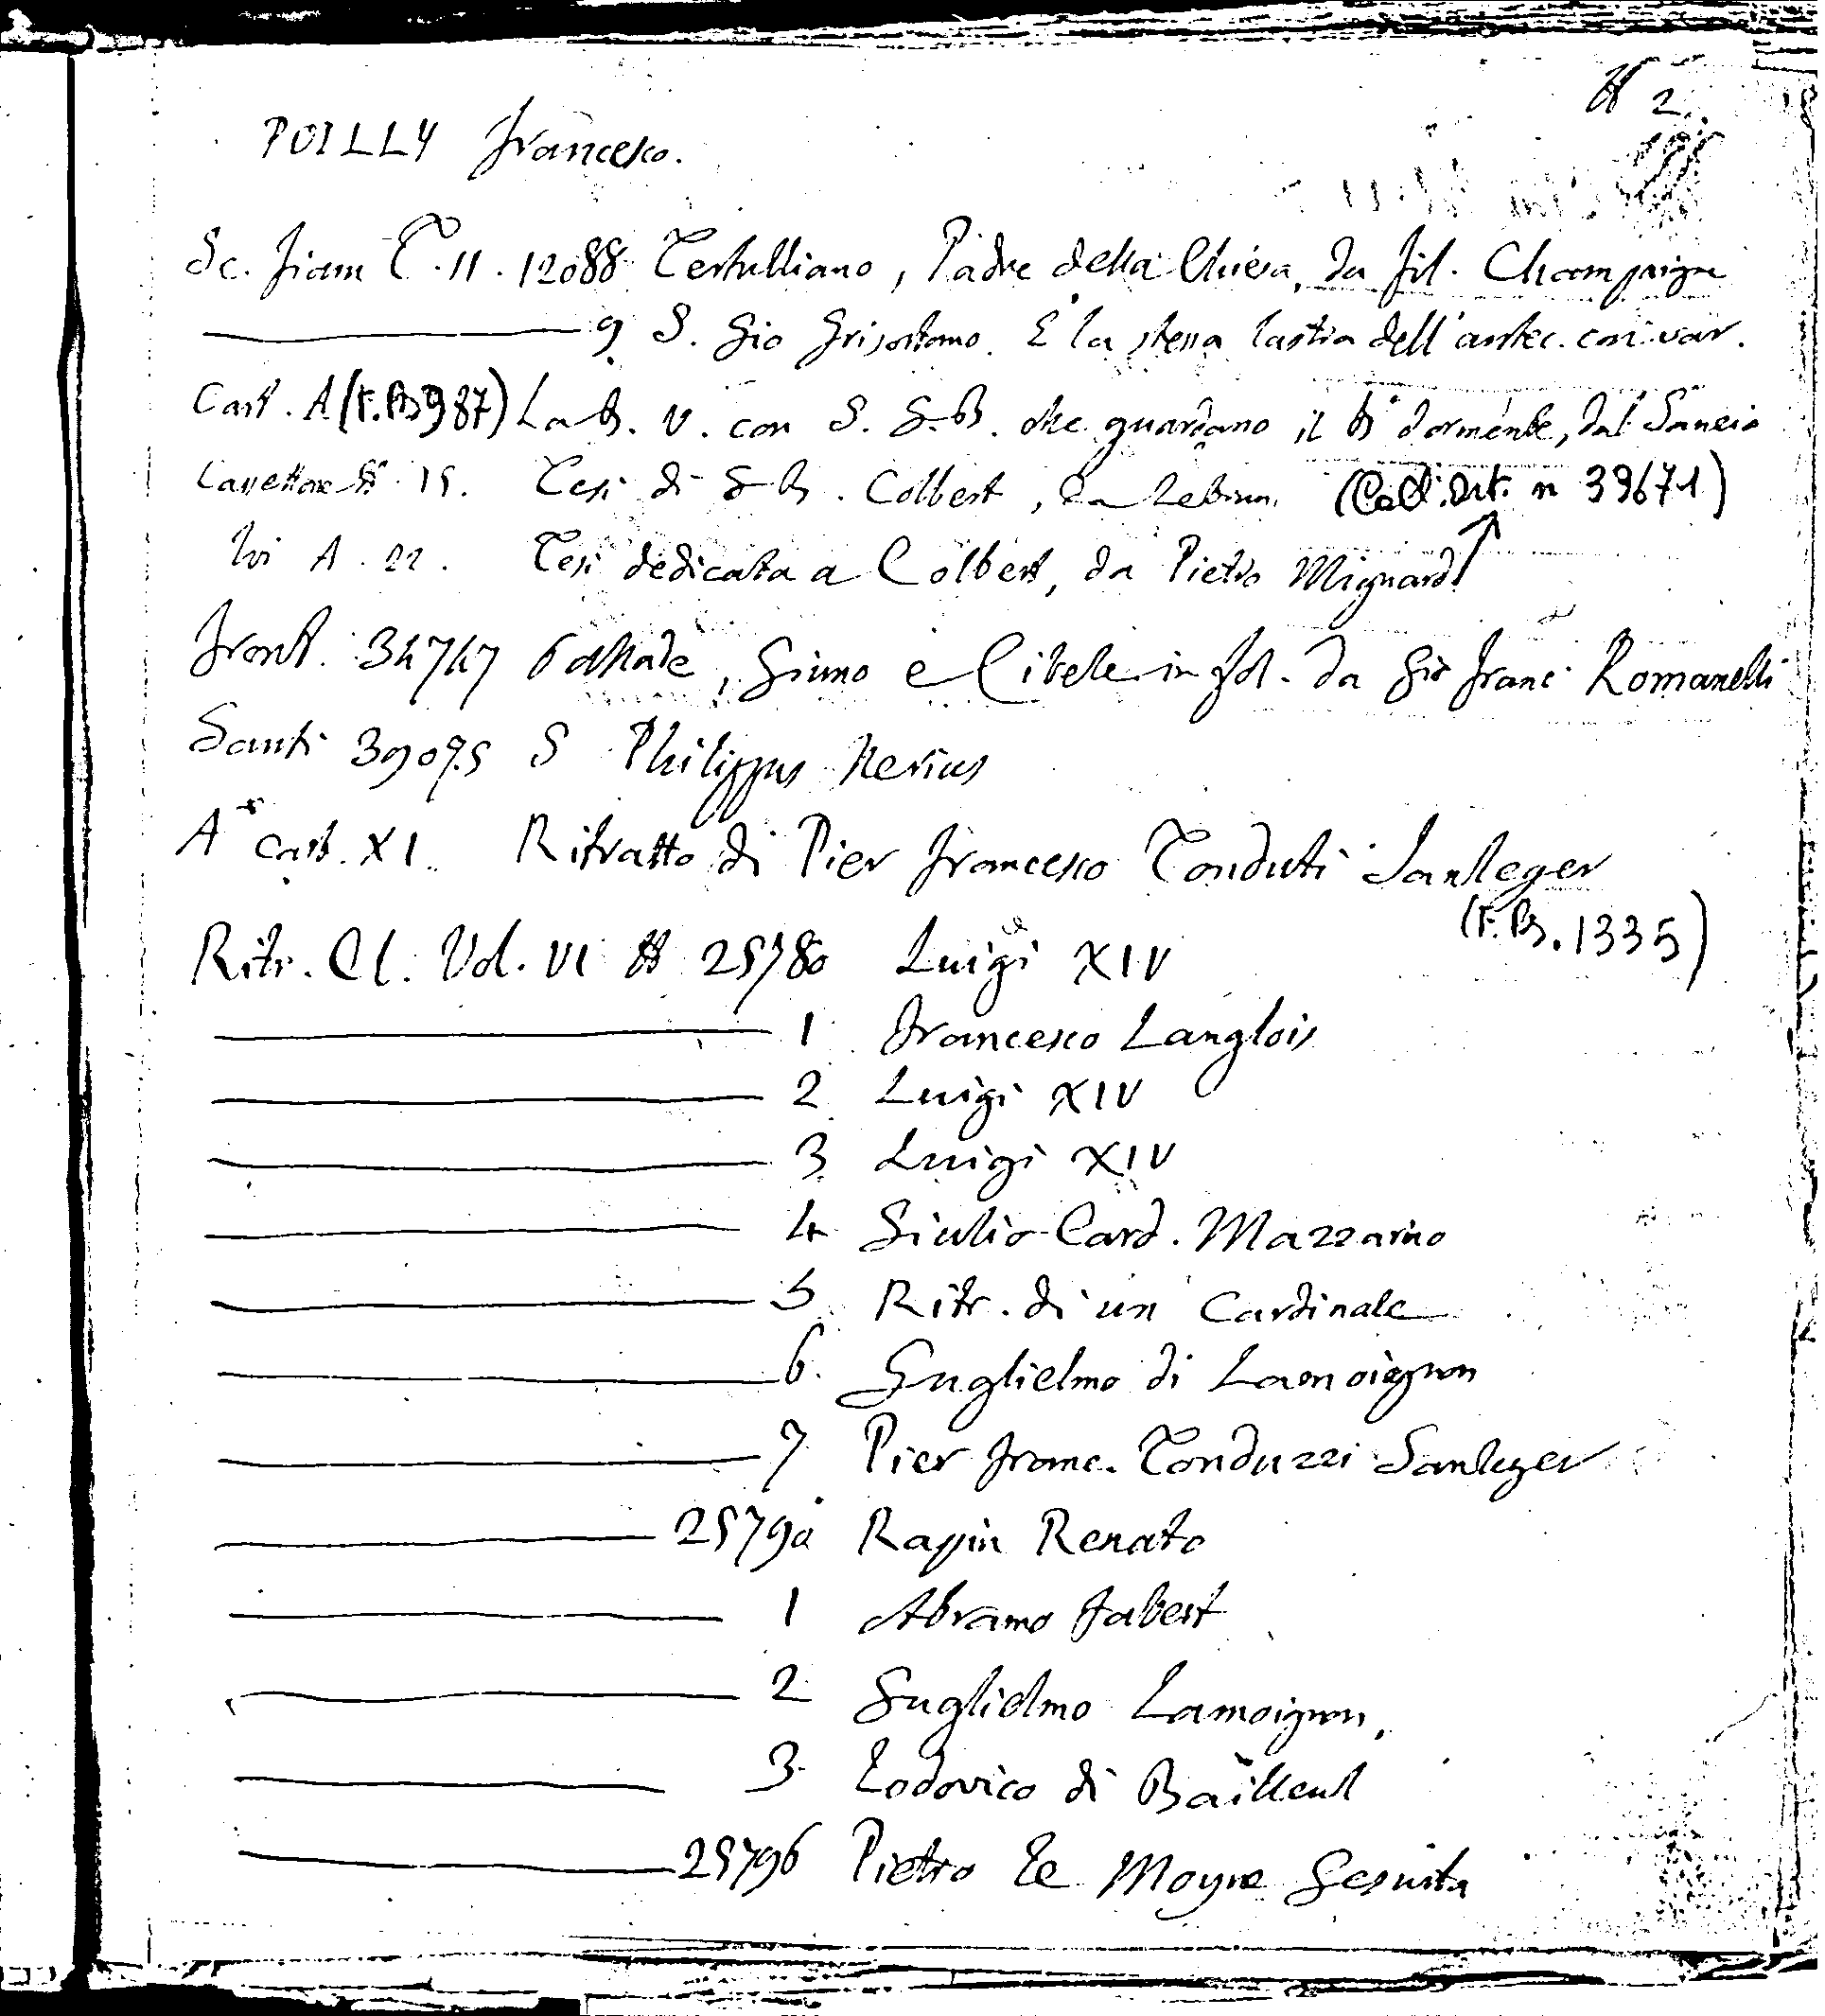 N 2.
POILLY Francesco.
Sc. Fiam T. 11. 12088 Tertulliano, Padre della Chiesa, da Fil. Champaigne
9 S. Gio Grisostomo. E' la stessa lastra dell'antec. con var.
Cart. A (F.B 987) La B. V. con S. G. B. che guardano il B dormente, dal Sancio
Cassettone N. 15. Tesi di G B. Colbert, da Lebrun. (Coll. Art. n 39671)
Ivi A. 22. Tesi dedicata a Colbert, da Pietro Mignard
Front. 34747 Pallade, Giuno e Cibele in fol. da Gio Franc. Romanelli
Santi 39075 S Philippus Nerius
A* cart. XI. Ritratto di Pier Francesco Tonduti Sanleger
(F.B. 1335)
Ritr. Cl. Vol. VI N 25780 Luigi XIV
1 Francesco Langlois
2 Luigi XIV
3 Luigi XIV
4 Giulio Card. Mazzarino
5 Ritr. di un Cardinale
6. Guglielmo di Lamoignon
7 Pier Franc. Tonduzzi Sanleger
25790 Rapin Renato
1 Abramo Fabert
2 Guglielmo Lamoignon,
3 Lodovico di Bailleul
25796 Pietro Le Moyne Gesuita